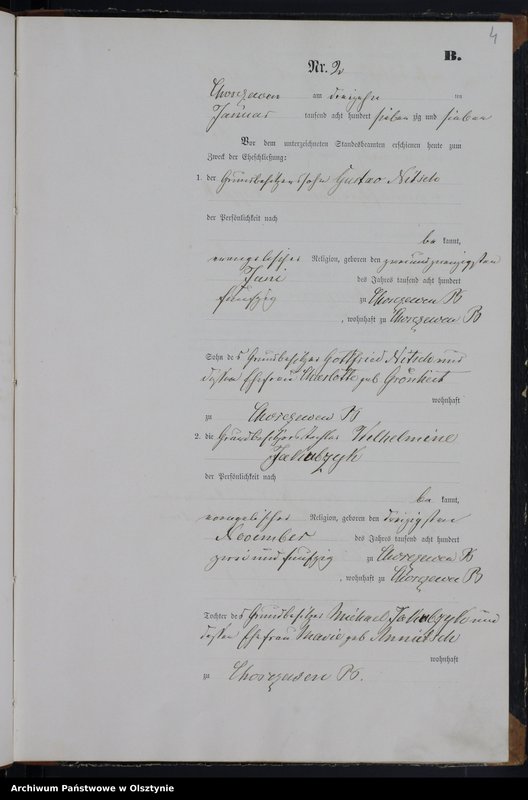 4
B.
Nr. 2
Chorzewen am dreizehn ten
Januar tausend acht hundert sieben zig und sieben
Vor dem unterzeichneten Standesbeamten erschienen heute zum
Zweck der Eheschließung:
1. der Grundbesitzerssohn Gustav Nitsch
der Persönlichkeit nach
be kannt,
evangelischer Religion, geboren den zweiundzwanzigsten
Juni des Jahres tausend acht hundert
fünfzig zu Chorzewen
, wohnhaft zu Chorzewen
Sohn des Grundbesitzer Gottfried Nitsch und
dessen Ehefrau Charlotte geb
wohnhaft
zu Chorzewen
2. die Grundbesitzerstochter Wilhelmine
Jakubzyk
der Persönlichkeit nach
be kannt,
evangelischer Religion, geboren den dreizigsten
November des Jahres tausend acht hundert
zwei und fünfzig zu Chorzewen
, wohnhaft zu Chorzewen
Tochter des Grundbesitzer Michael Jakubzyk und
dessen Ehefrau Marie geb
wohnhaft
zu Chorzewen
Archiwum Państwowe w Olsztynie